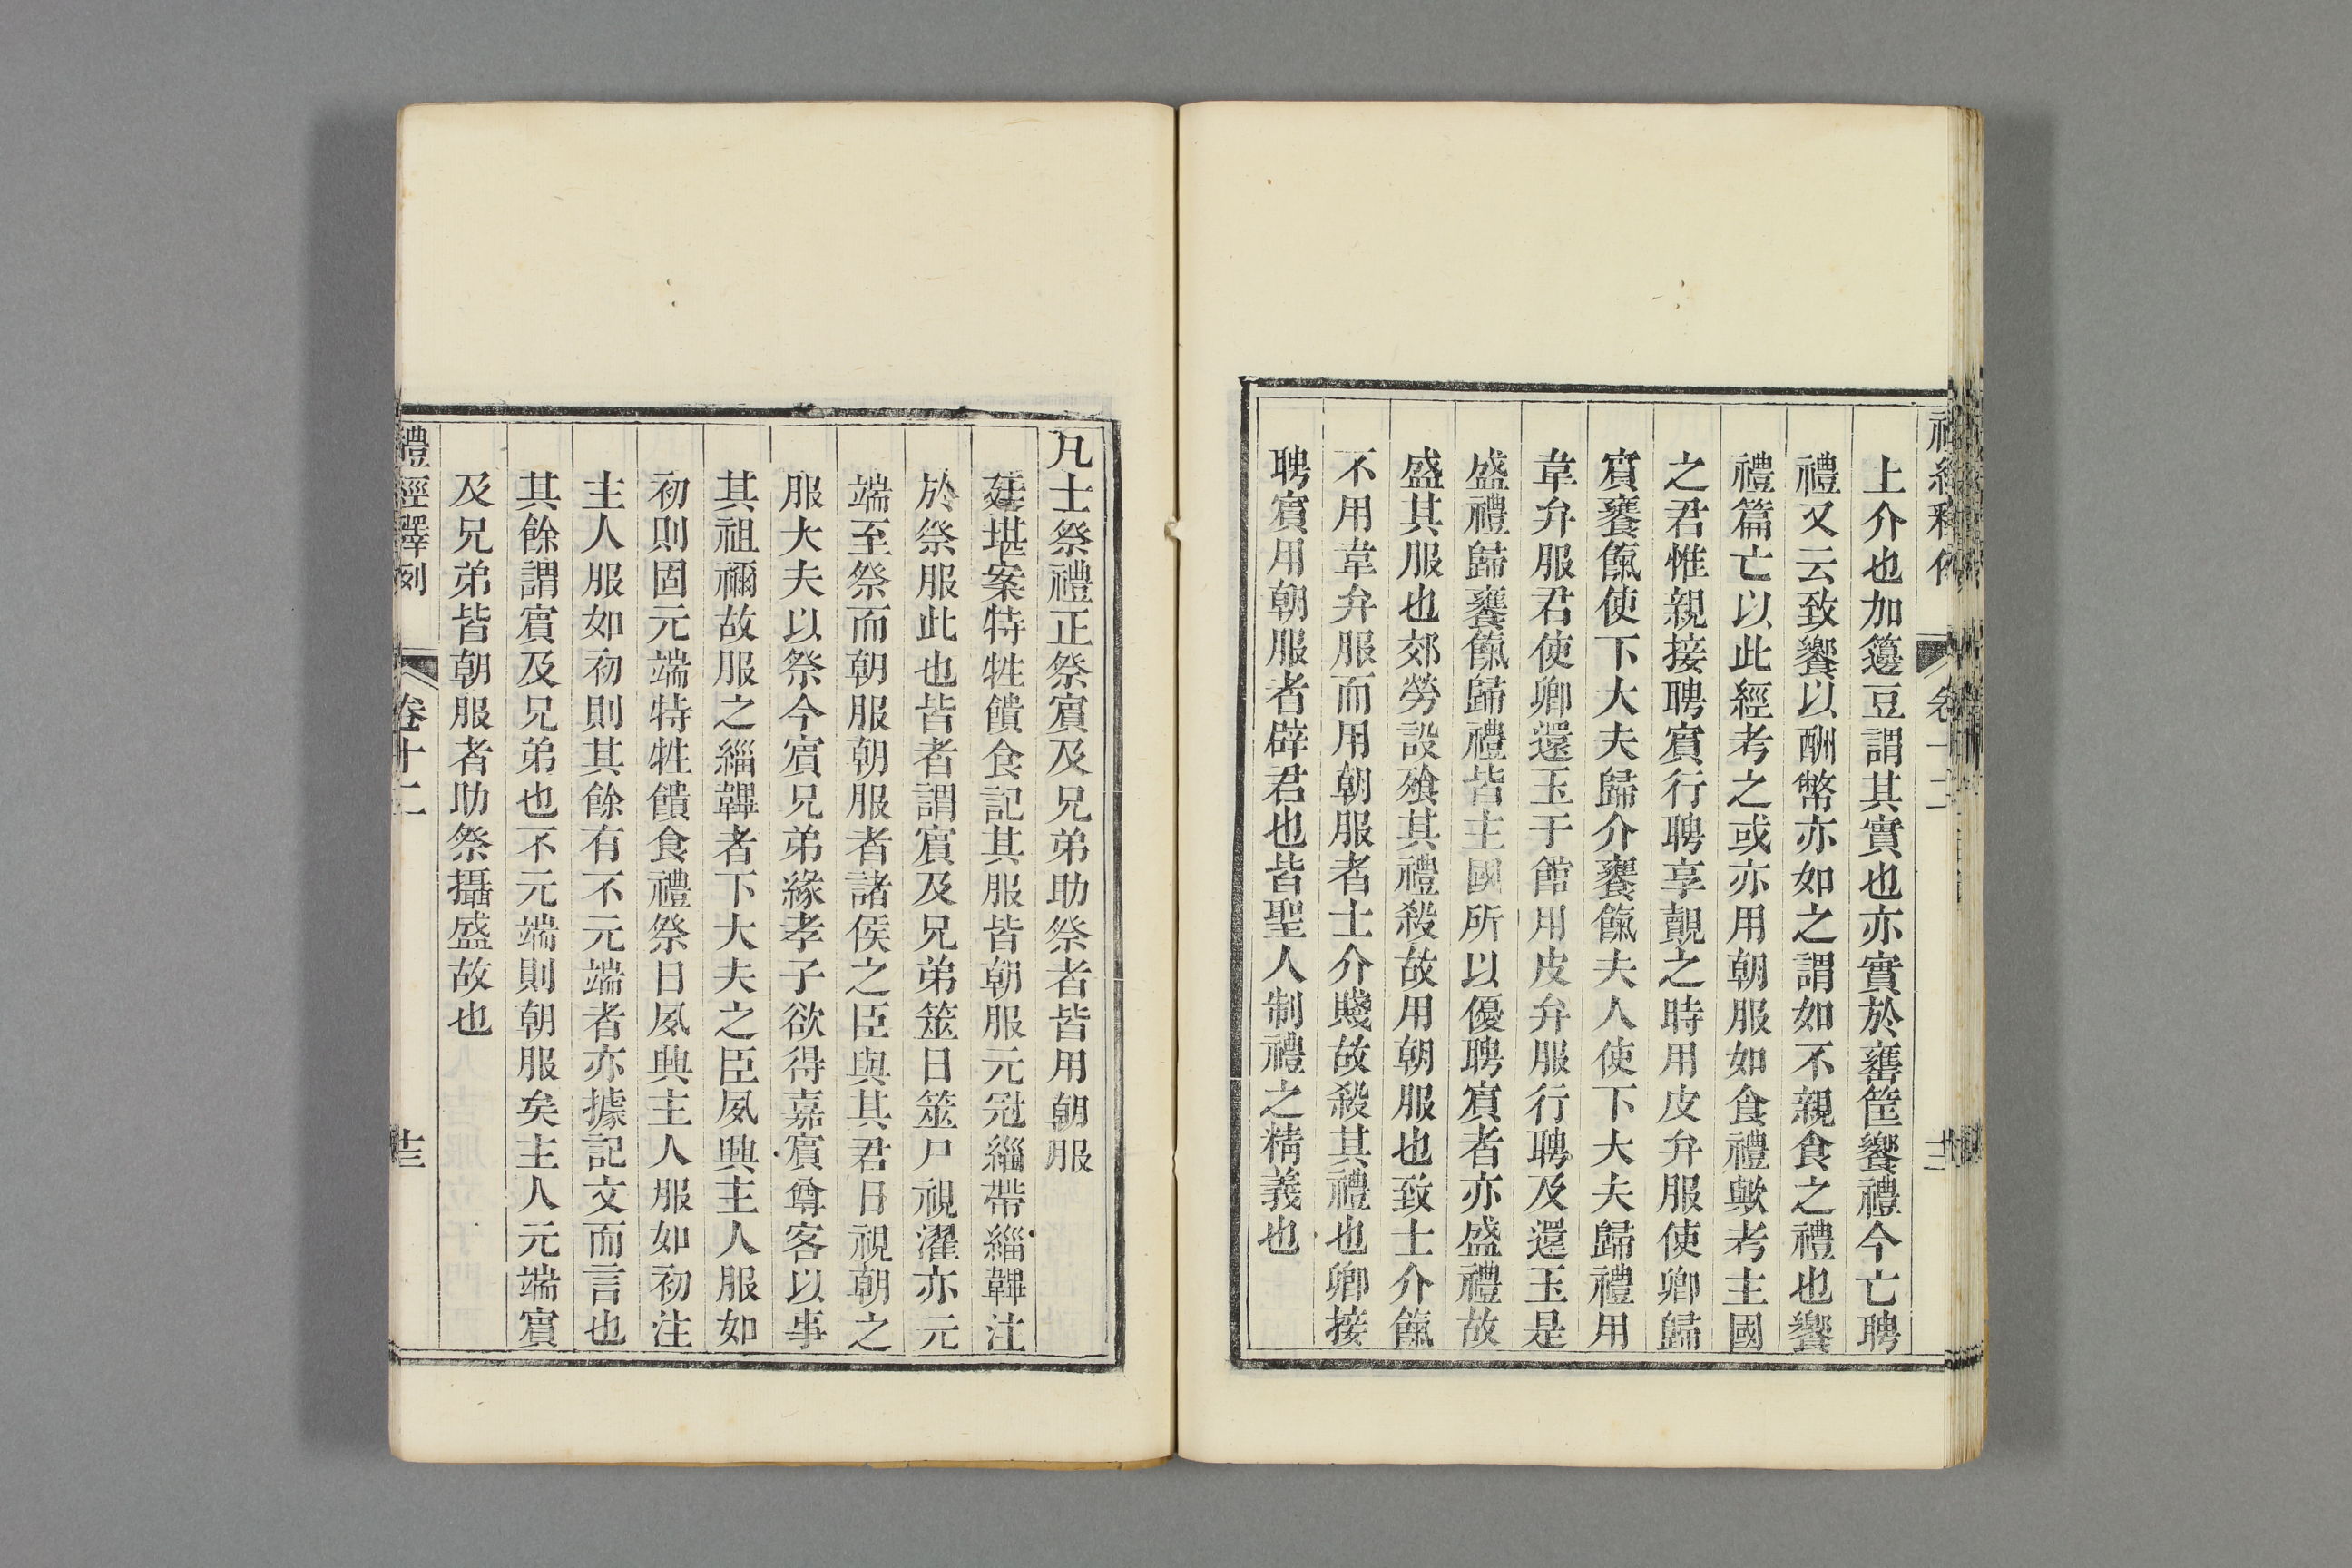 上介也加籩豆謂其實也亦實於罋筐饗禮今亡聘
禮又云致饗以酬幣亦如之謂如不親食之禮也饗
禮篇亡以此經考之或亦用朝服如食禮歟考主國
之君惟親接聘賔行聘享覿之時用皮弁服使卿歸
賔饔餼使下大夫歸介饔餼夫人使下大夫歸禮用
韋弁服君使卿還玉于館用皮弁服行聘及還玉是
盛禮歸饔餼歸禮皆主國所以優聘賔者亦盛禮故
盛其服也郊勞設飱其禮殺故用朝服也致士介餼
不用韋弁服而用朝服者士介賤故殺其禮也卿接
聘賔用朝服者辟君也皆聖人制禮之精義也
凡士祭禮正祭賔及兄弟助祭者皆用朝服
廷堪案特牲饋食記其服皆朝服元冠緇帶緇韠注
於祭服此也皆者謂賔及兄弟筮日筮尸視濯亦元
端至祭而朝服朝服者諸侯之臣與其君日視朝之
服大夫以祭今賔兄弟緣孝子欲得嘉賔尊客以事
其祖禰故服之緇韠者下大夫之臣夙興主人服如
初則固元端特牲饋食禮祭日夙興主人服如初注
主人服如初則其餘有不元端者亦據記文而言也
其餘謂賔及兄弟也不元端則朝服矣主人元端賔
及兄弟皆朝服者助祭攝盛故也
禮經釋例 卷十二